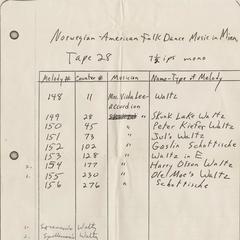 Norwegian-American Folk Dance Music in Minn.
Tape 28 7½ ips mono
Melody # Counter # Musician Name-Type of Melody
148 11 Mrs. Viola Lee- Waltz
Accordion
149 28 " Skunk Lake Waltz
150 45 " Peter Kiefer Waltz
151 73 " Jul's Waltz
152 102 " Goslin Schottische
153 128 " Waltz in E
2. 154 177 " Harry Olson Waltz
2. 155 230 " Ole Moe's Waltz
156 276 " Schottische
1. Waltz
2. Waltz